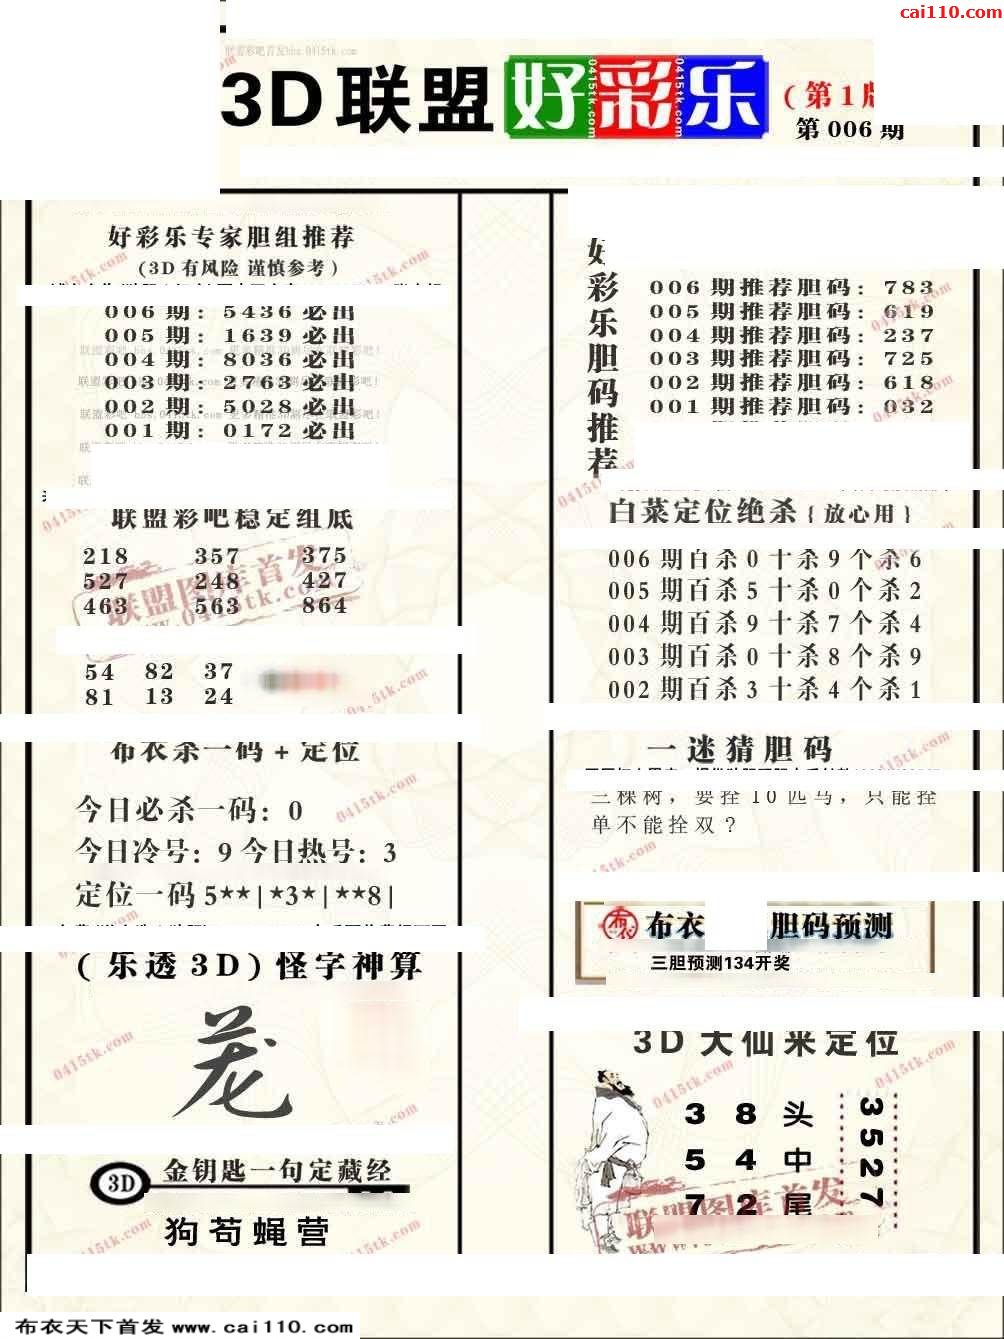 cai110.com
3D联盟 好彩乐
(第1版
第006期
好彩乐专家胆组推荐
(3D有风险 谨慎参考)
006期: 5436必出
005期: 1639必出
004期: 8036必出
003期: 2763必出
002期: 5028必出
001期: 0172必出
联盟彩吧稳定组底
218 357 375
527 248 427
463 563 864
54 82 37
81 13 24
布衣杀一码+定位
今日必杀一码: 0
今日冷号: 9 今日热号: 3
定位一码5**|*3*|**8|
(乐透3D)怪字神算
3D 金钥匙一句定藏经
狗苟蝇营
好彩乐胆码推荐
006期推荐胆码: 783
005期推荐胆码: 619
004期推荐胆码: 237
003期推荐胆码: 725
002期推荐胆码: 618
001期推荐胆码: 032
白菜定位绝杀{放心用}
006期百杀0十杀9个杀6
005期百杀5十杀0个杀2
004期百杀9十杀7个杀4
003期百杀0十杀8个杀9
002期百杀3十杀4个杀1
一迷猜胆码
三棵树，要拴10匹马，只能拴
单不能拴双？
布衣 布衣 胆码预测
三胆预测134开奖
3D大仙来定位
3 8 头
5 4 中
7 2 尾
3527
联盟图库首发
www.0415tk.com
联盟图库首发
布衣天下首发 www.cai110.com